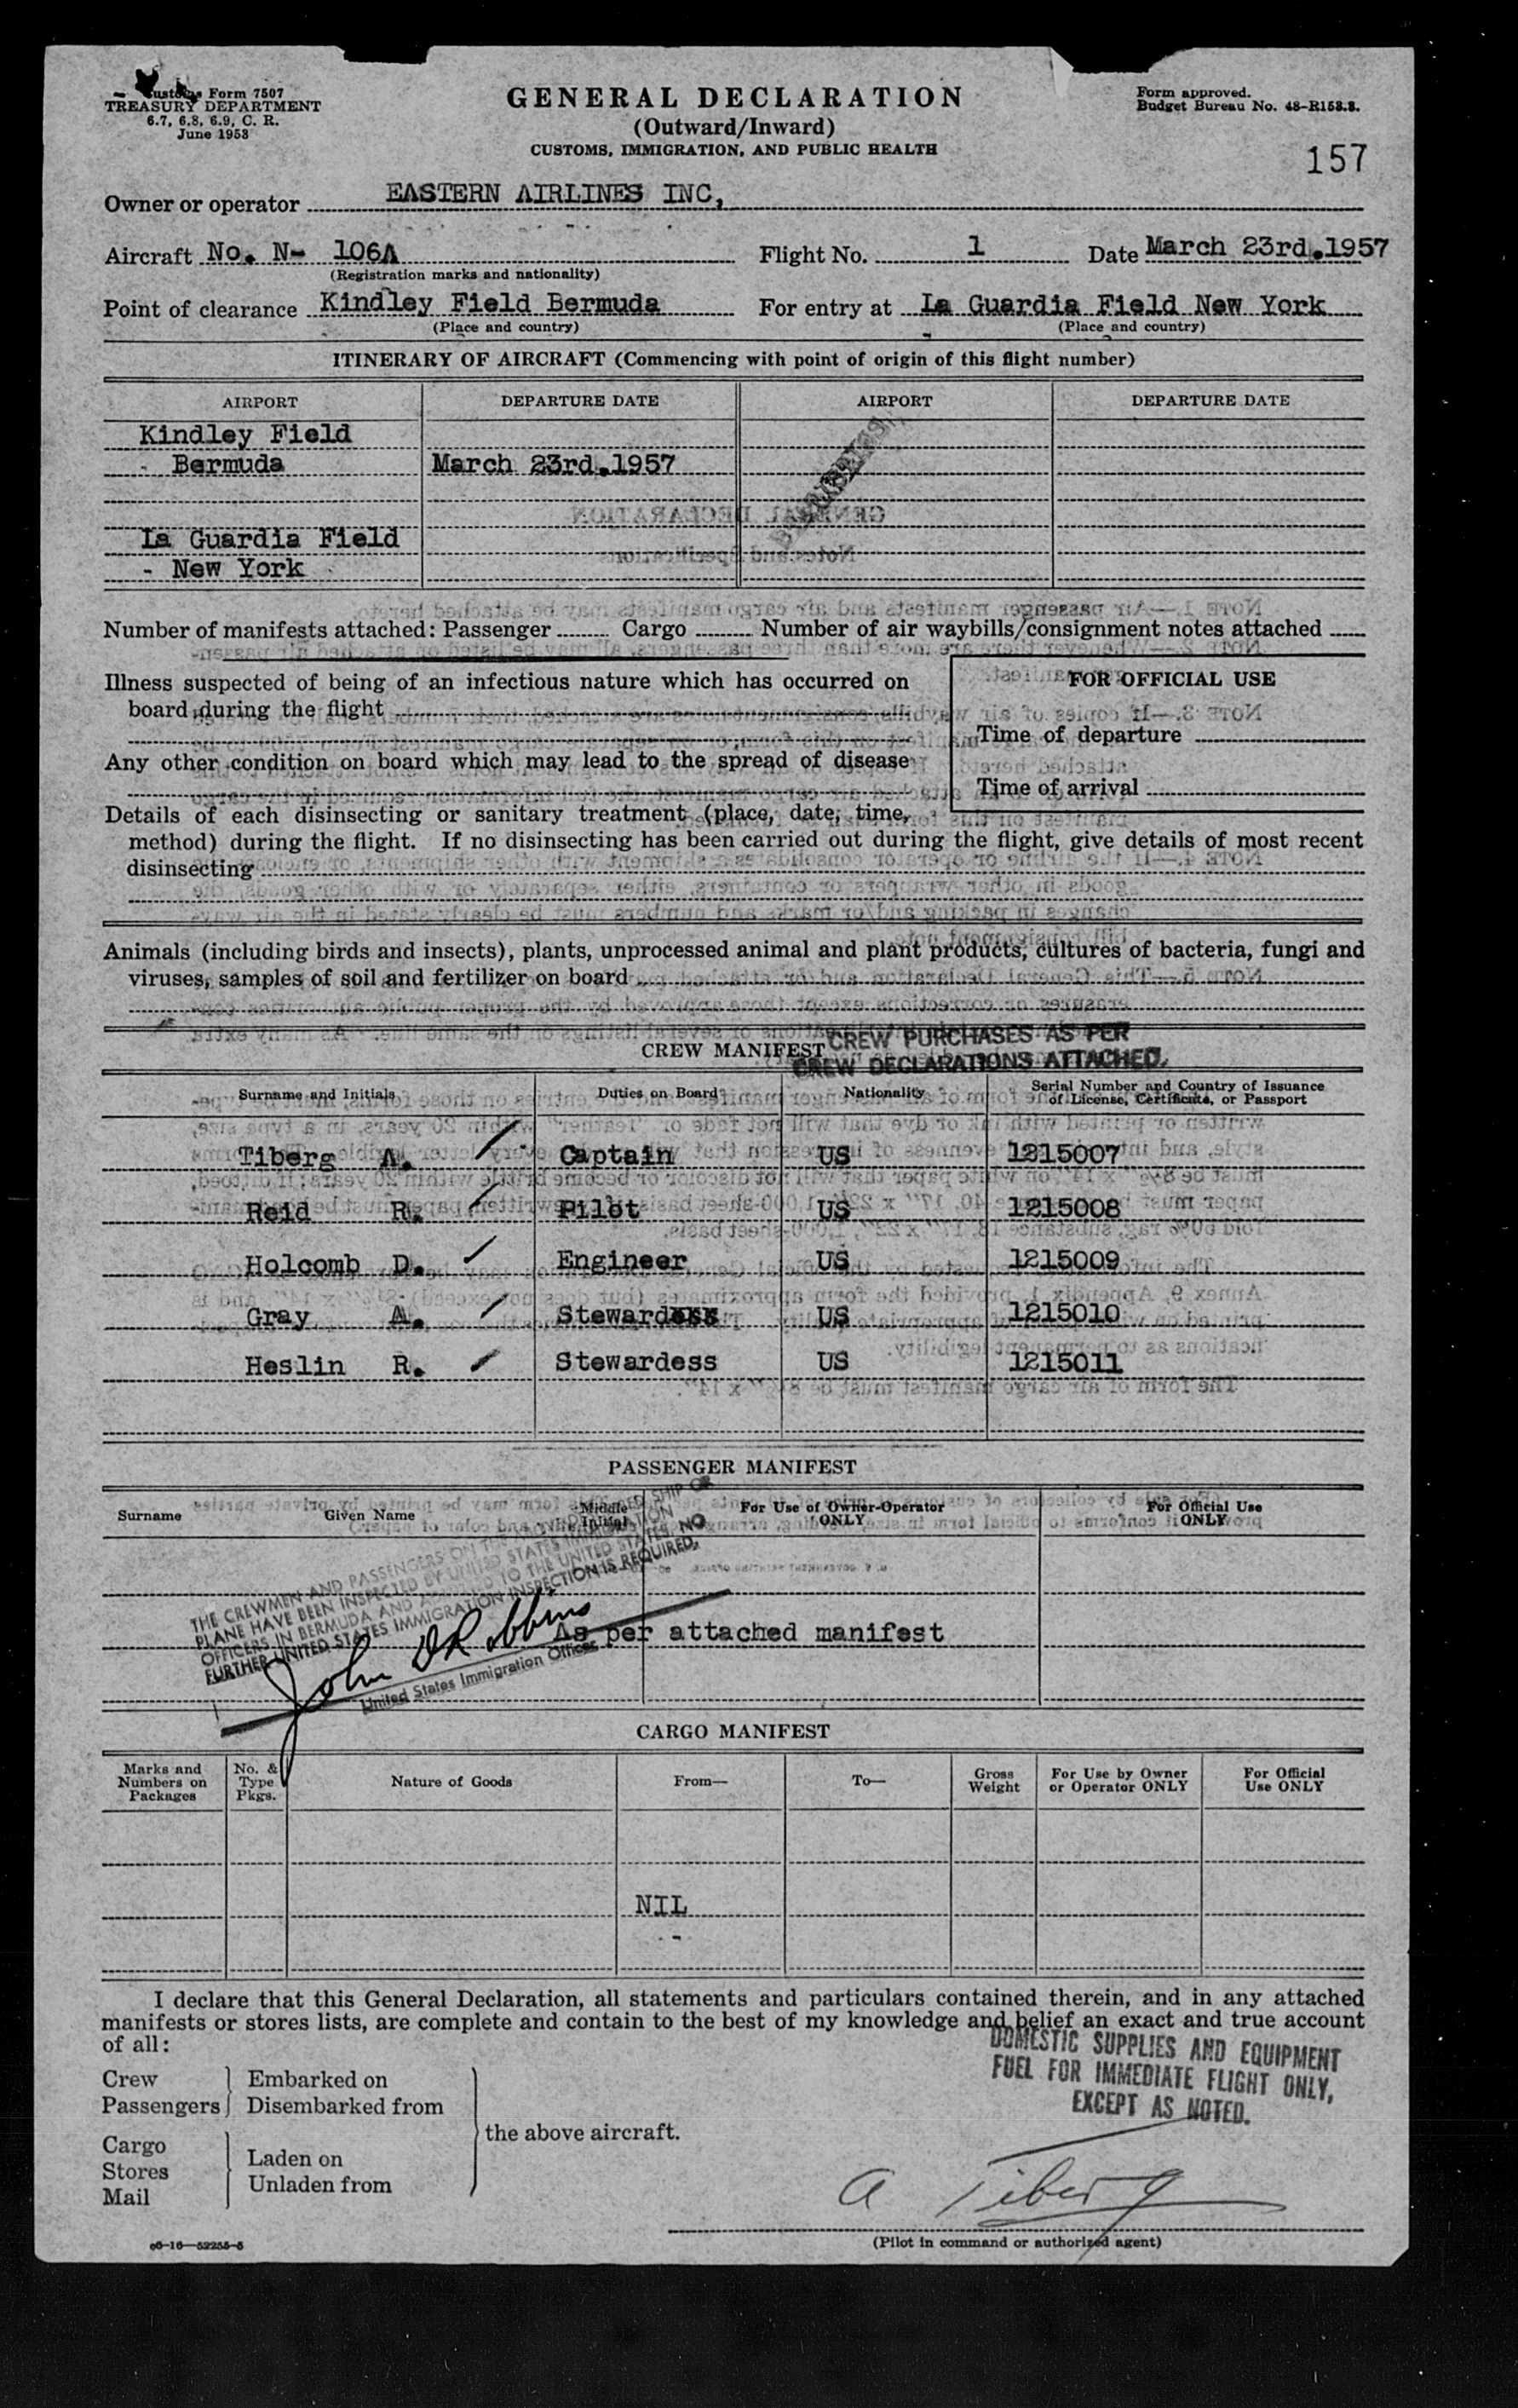 Customs Form 7507
TREASURY DEPARTMENT
6.7, 6.8, 6.9, C. R.
June 1953
GENERAL DECLARATION
(Outward/Inward)
CUSTOMS, IMMIGRATION, AND PUBLIC HEALTH
Form approved.
Budget Bureau No. 48-R153.3.
157
Owner or operator EASTERN AIRLINES INC,
Aircraft No. N- 106A Flight No. 1 Date March 23rd.1957
(Registration marks and nationality)
Point of clearance Kindley Field Bermuda For entry at La Guardia Field New York
(Place and country) (Place and country)
ITINERARY OF AIRCRAFT (Commencing with point of origin of this flight number)
AIRPORT DEPARTURE DATE AIRPORT DEPARTURE DATE
Kindley Field
- Bermuda March 23rd.1957
La Guardia Field
- New York
Number of manifests attached: Passenger Cargo Number of air waybills/consignment notes attached
Illness suspected of being of an infectious nature which has occurred on
board during the flight
Any other condition on board which may lead to the spread of disease
FOR OFFICIAL USE
Time of departure
Time of arrival
Details of each disinsecting or sanitary treatment (place, date, time,
method) during the flight. If no disinsecting has been carried out during the flight, give details of most recent
disinsecting
Animals (including birds and insects), plants, unprocessed animal and plant products, cultures of bacteria, fungi and
viruses, samples of soil and fertilizer on board
CREW MANIFEST
CREW PURCHASES AS PER
CREW DECLARATIONS ATTACHED.
Surname and Initials Duties on Board Nationality Serial Number and Country of Issuance
of License, Certificate, or Passport
Tiberg A. Captain US 1215007
Reid R. Pilot US 1215008
Holcomb D. Engineer US 1215009
Gray A. Steward US 1215010
Heslin R. Stewardess US 1215011
PASSENGER MANIFEST
Surname Given Name Middle Initial For Use of Owner-Operator ONLY For Official Use ONLY
THE CREWMEN AND PASSENGERS ON THE SHIP OR
PLANE HAVE BEEN INSPECTED BY UNITED STATES IMMIGRATION
OFFICERS IN BERMUDA AND ADMITTED TO THE UNITED STATES. NO
FURTHER UNITED STATES IMMIGRATION INSPECTION IS REQUIRED.
John D Robbins
United States Immigration Officer
As per attached manifest
CARGO MANIFEST
Marks and Numbers on Packages No. & Type Pkgs. Nature of Goods From— To— Gross Weight For Use by Owner or Operator ONLY For Official Use ONLY
NIL
-
I declare that this General Declaration, all statements and particulars contained therein, and in any attached
manifests or stores lists, are complete and contain to the best of my knowledge and belief an exact and true account
of all:
DOMESTIC SUPPLIES AND EQUIPMENT
FUEL FOR IMMEDIATE FLIGHT ONLY,
EXCEPT AS NOTED.
Crew Embarked on
Passengers Disembarked from
the above aircraft.
Cargo
Stores Laden on
Mail Unladen from
A Tiberg
(Pilot in command or authorized agent)
c6-16-52255-5